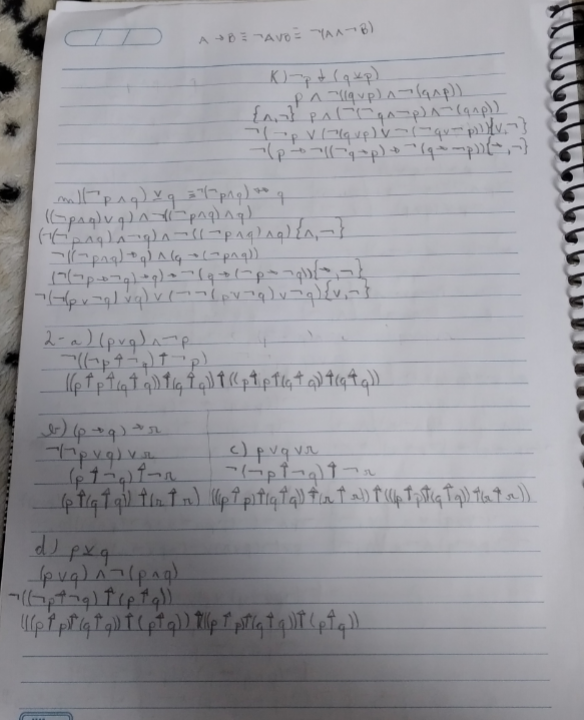 A → B ≡ ¬A∨B ≡ ¬(A∧¬B)
K) ¬p ↓ (q⊻p)
p ∧ ¬((q∨p) ∧ ¬(q∧p))
{∧,¬} p∧(¬(¬q∧¬p)∧¬(q∧p))
¬(¬p ∨ (¬(q∨p) ∨ ¬(¬q∨¬p))) {∨,¬}
¬(p→¬((¬q→p)→¬(q→¬p))) {→,¬}
m) (¬p∧q) ⊻ q ≡ ¬(¬p∧q) ↔ q
((¬p∧q)∨q) ∧ ¬((¬p∧q)∧q)
(¬(¬p∧q)∧¬q) ∧ ¬((¬p∧q)∧q) {∧,¬}
¬((¬p∧q)→q) ∧ (q→(¬p∧q))
(¬(¬p→¬q)→q)→¬(q→(¬p→¬q)) {→,¬}
¬(¬(p∨¬q)∨q)∨(¬¬(p∨¬q)∨¬q) {∨,¬}
2-a) (p∨q) ∧ ¬p
¬((¬p↑¬q)↑¬p)
((p↑p↑(q↑q))↑(q↑q)↑((p↑p↑(q↑q)↑(q↑q))
b) (p→q)→r
¬(¬p∨q)∨r
(p↑¬q)↑¬r
(p↑(q↑q))↑(r↑r)
c) p∨q∨r
¬(¬p↑¬q)↑¬r
((p↑p)↑(q↑q))↑(r↑r))↑((p↑p)↑(q↑q))↑(r↑r))
d) p⊻q
(p∨q) ∧ ¬(p∧q)
¬((¬p↑¬q)↑(p↑q))
(((p↑p)↑(q↑q))↑(p↑q))↑((p↑p)↑(q↑q))↑(p↑q))